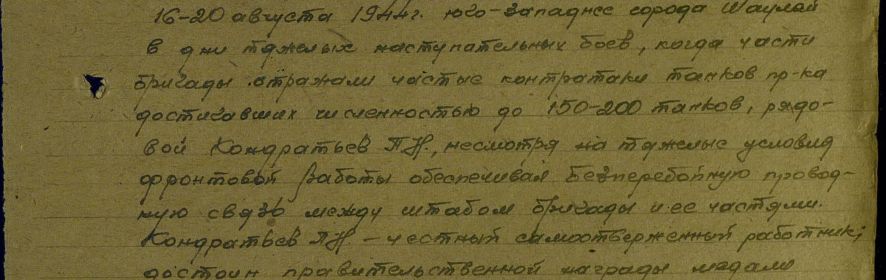 16-20 августа 1944г. юго-западнее города Шауляй
в дни тяжелых наступательных боев, когда части
бригады отражали частые контратаки танков пр-ка
достигавших численностью до 150-200 танков, рядо-
вой Кондратьев П.Н., несмотря на тяжелые условия
фронтовой работы обеспечивал безперебойную провод-
ную связь между штабом бригады и ее частями.
Кондратьев П.Н. - честный самоотверженный работник;
достоин правительственной награды медали